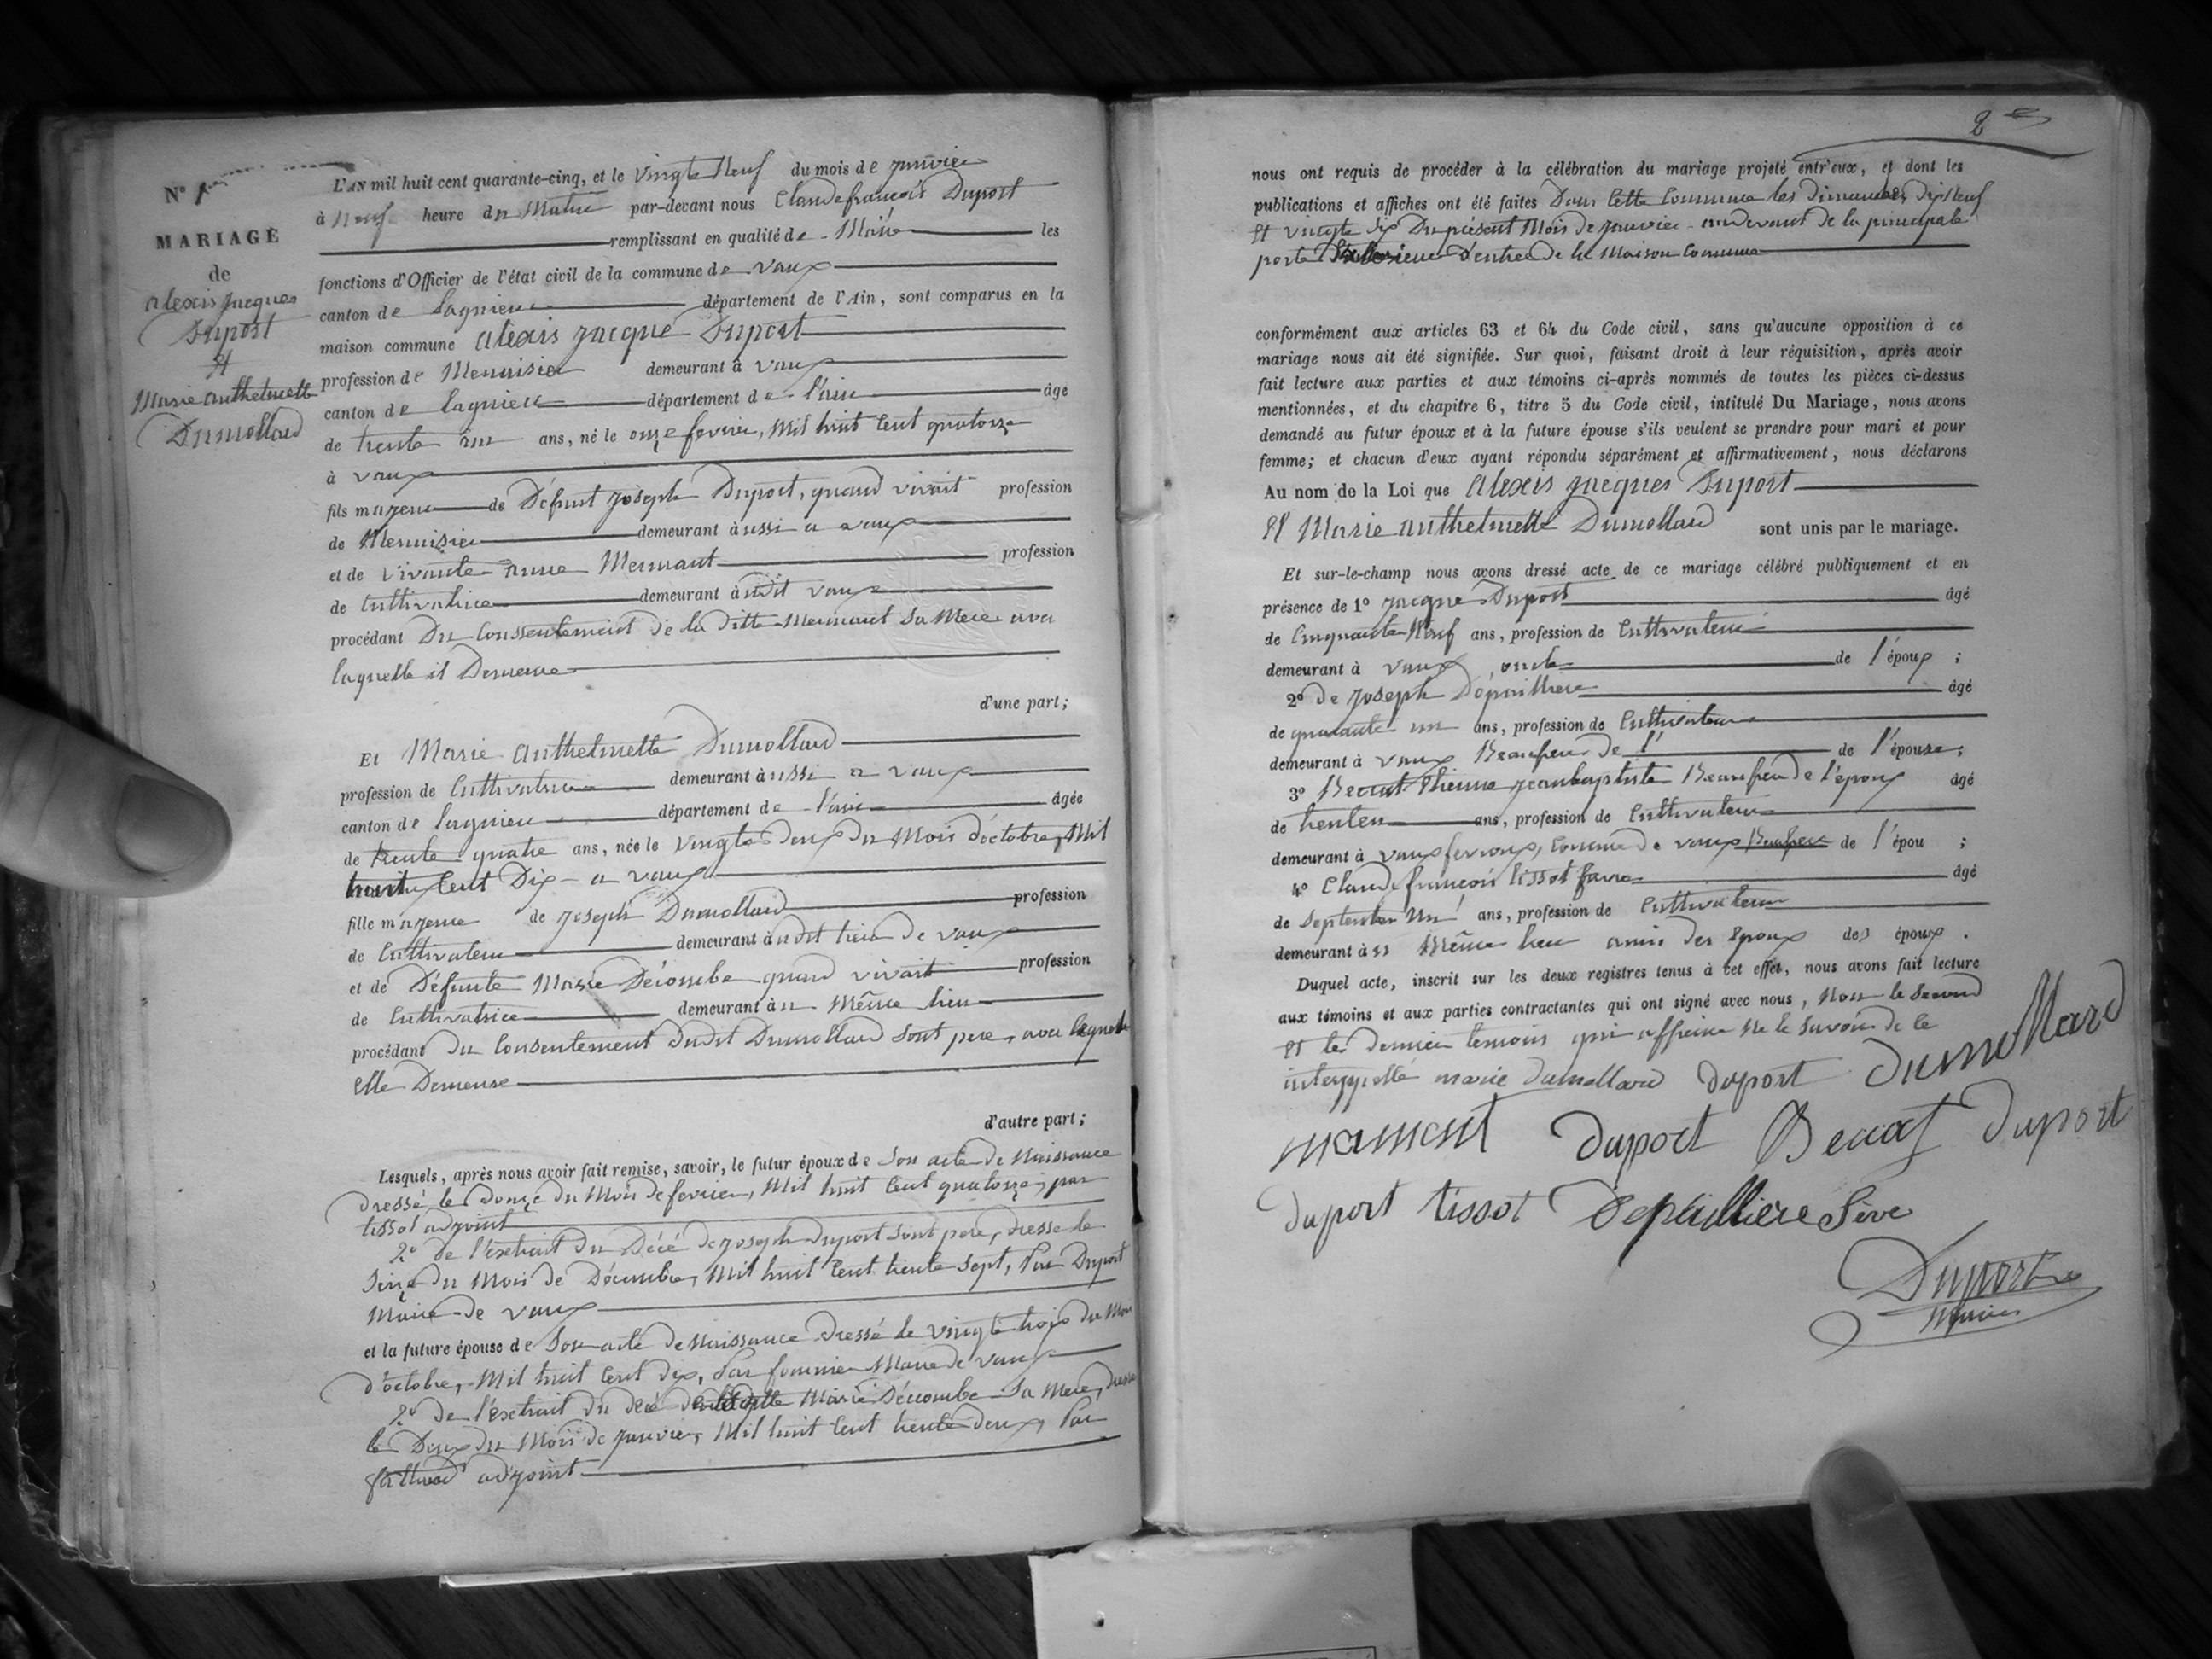 N° 1
MARIAGE
de
alexis jacques
Duport
et
Marie anthelmette
Dumollard
L'AN mil huit cent quarante-cinq, et le vingte Neuf du mois de janvier
à Neuf heure du Matin par-devant nous Claude françois Duport
remplissant en qualité de Maire les
fonctions d'Officier de l'état civil de la commune de vaux
canton de Lagnieu département de l'Ain, sont comparus en la
maison commune alexis jacque Duport
profession de Menuisier demeurant à vaux
canton de lagnieu département de l'ain âgé
de trente un ans, né le onze fevrier, Mil huit Cent quatorze
à vaux
fils majeur de Défunt joseph Duport, quand vivait profession
de Menuisier demeurant à ussi a vaux
et de vivante anne Mermant profession
de Cultivatrice demeurant à udit vaux
procédant Du Conssentement de la ditte Mermant Sa Mere avec
laquelle il Demeure
d'une part;
Et Marie anthelmette Dumollard
profession de Cultivatrice demeurant à ussi a vaux
canton de lagnieu département de l'ain âgée
de trente quatre ans, née le vingte Deux du Mois d'octobre, Mil
huit Cent Dix a vaux
fille majeure de joseph Dumollard profession
de Cultivateur demeurant à udit lieu de vaux
et de Défunte Marie Décombe quand vivait profession
de Cultivatrice demeurant à u Même lieu
procédant du Consentement dudit Dumollard Sont pere, avec lequel
Elle Demeure
d'autre part;
Lesquels, après nous avoir fait remise, savoir, le futur époux de Son acte de Naissance
dressé le Douze du Mois de fevrier, Mil huit Cent quatorze, par
tissot adjoint
2° de l'extrait du Décé de joseph Duport Sont pere, dressé le
Seize du Mois de Décembre, Mil huit Cent trente Sept, Par Duport
Maire de vaux
et la future épouse de Son acte de Naissance dressé le vingte trois du Mois
d'octobre, Mil huit Cent dix, Par fournier Maire de vaux
2° de l'extrait du décé de Marie Décombe Sa Mere, dressé
le Deux du Mois de janvier, Mil huit Cent trente deux, Par
adjoint
2
nous ont requis de procéder à la célébration du mariage projeté entr'eux, et dont les
publications et affiches ont été faites Dans Cette Commune les dimanches dix Neuf
Et vingte Six Du présent Mois de janvier audevant de la principale
porte D'entrée de la Maison Commune
conformément aux articles 63 et 64 du Code civil, sans qu'aucune opposition à ce
mariage nous ait été signifiée. Sur quoi, faisant droit à leur réquisition, après avoir
fait lecture aux parties et aux témoins ci-après nommés de toutes les pièces ci-dessus
mentionnées, et du chapitre 6, titre 5 du Code civil, intitulé Du Mariage, nous avons
demandé au futur époux et à la future épouse s'ils veulent se prendre pour mari et pour
femme; et chacun d'eux ayant répondu séparément et affirmativement, nous déclarons
Au nom de la Loi que alexis jacques Duport
Et Marie anthelmette Dumollard sont unis par le mariage.
Et sur-le-champ nous avons dressé acte de ce mariage célébré publiquement et en
présence de 1° jacque Duport âgé
de Cinquante Neuf ans, profession de Cultivateur
demeurant à vaux oncle de l'époux ;
2° de joseph Dépailliere âgé
de quarante un ans, profession de Cultivateur
demeurant à vaux Beaufrere de l' de l'épouse ;
3° Beccat Etienne jeanbaptiste Beaufrere de l'époux âgé
de trente ans, profession de Cultivateur
demeurant à vaux fevroux, Commune de vaux Beaufrere de l'épou ;
4° Claude françois tissot favre âgé
de Septente Un ans, profession de Cultivateur
demeurant à u Même lieu amis des Epoux des époux.
Duquel acte, inscrit sur les deux registres tenus à cet effet, nous avons fait lecture
aux témoins et aux parties contractantes qui ont signé avec nous, Non le Second
Et les dernier temoins qui affirme Ne le Savoir de ce
interppellé marie dumollard duport dumollard
merment duport Beccat duport
duport tissot Depaillliere Séve
Duport
Maire